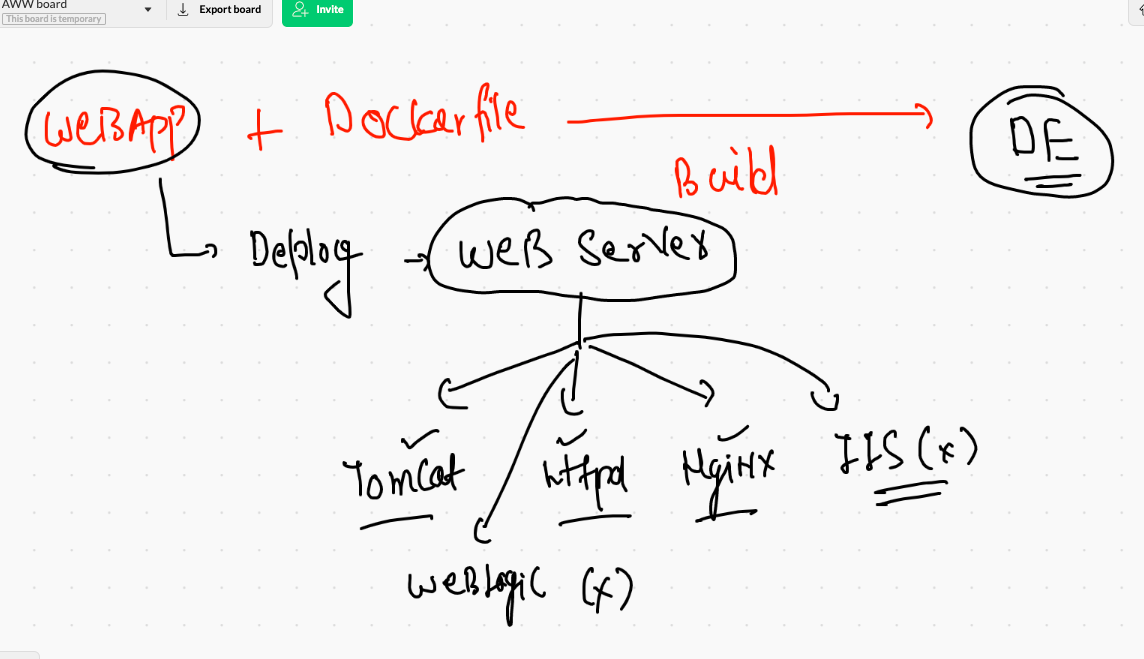 AWW board
This board is temporary
Export board
Invite
WEBApp + Dockerfile
Build
DE
Deploy
WEB Server
Tomcat
httpd
NgiNX
IIS (x)
WEBLogic (x)